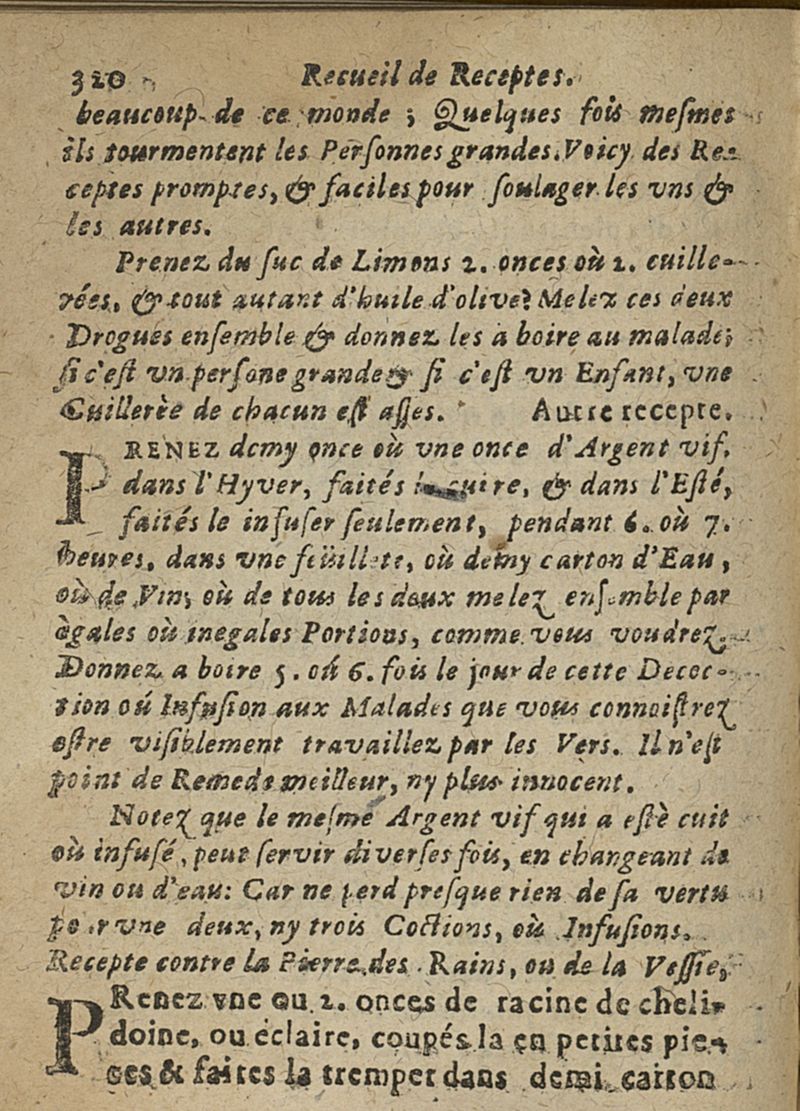 320 Recueil de Receptes.
beaucoup de ce monde ; Quelques fois meſmes
ils tourmentent les Perſonnes grandes. Voicy des Re-
ceptes promptes, & faciles pour ſoulager les vns &
les autres.
Prenez du ſuc de Limons 2. onces où 2. cuille-
rées, & tout autant d'huile d'olive? Melez ces deux
Drogues enſemble & donnez les a boire au malade;
ſi c'eſt vn perſone grande & ſi c'eſt vn Enfant, vne
Cuillerèe de chacun eſt aſſes. Autre recepte.
PRENEZ demy once où vne once d'Argent vif,
dans l'Hyver, faités cuire, & dans l'Eſté,
faités le infuſer ſeulement, pendant 6. où 7.
heures, dans vne feüillete, où demy carton d'Eau,
où de Vin; où de tous les deux melez enſemble par
ègales où inegales Portions, comme vous voudrez.
Donnez a boire 5. oú 6. fois le jour de cette Decoc-
tion oú Infuſion aux Malades que vous connoiſtrez
eſtre viſiblement travaillez par les Vers. Il n'eſt
point de Remede meilleur, ny plus innocent.
Notez que le meſme Argent vif qui a eſtè cuit
où infuſé, peut ſervir diverſes fois, en changeant de
vin ou d'eau: Car ne perd preſque rien de ſa vertu
pour vne deux, ny trois Coctions, où Infuſions.
Recepte contre la Pierre des Rains, ou de la Veſſie,
PRenez vne ou 2. onces de racine de cheli-
doine, ou éclaire, coupés la en petites pie-
ces & faites la tremper dans demi carton